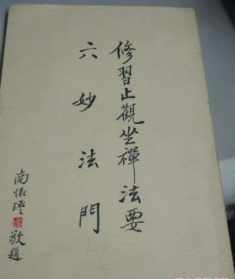 修習止觀坐禪法要
六妙法門
南懷瑾敬題